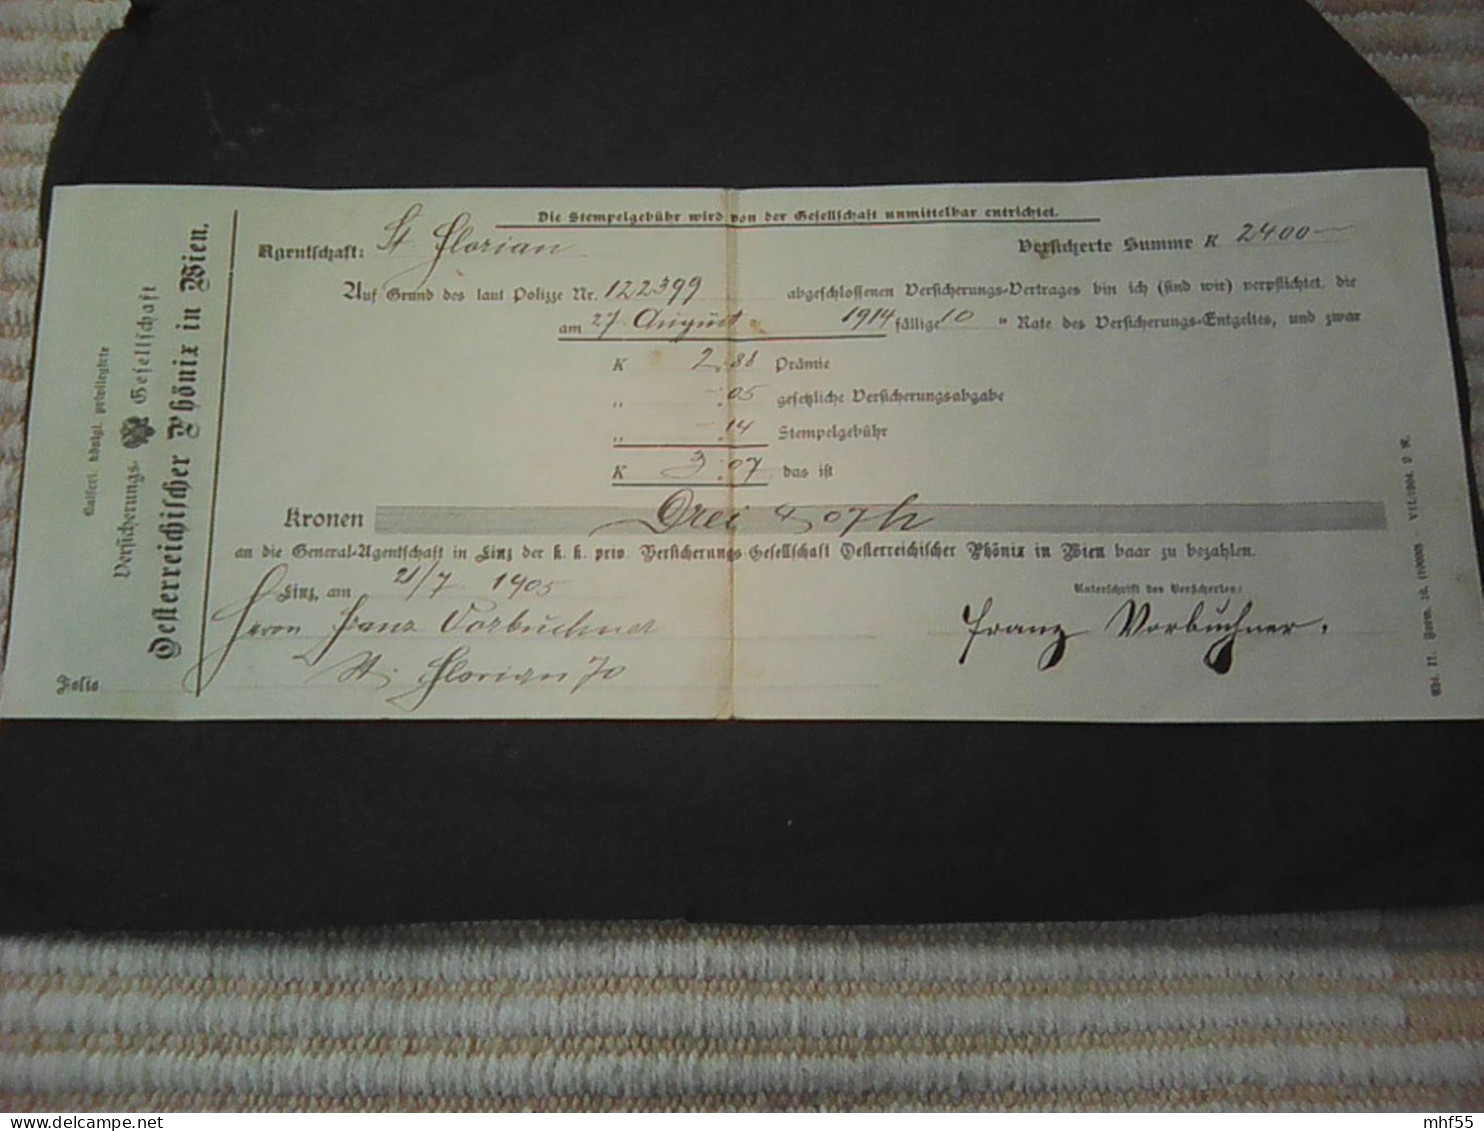 Kaiserl. königl. privilegirte
Versicherungs- Gesellschaft
Oesterreichischer Phönix in Wien.
Folio
Die Stempelgebühr wird von der Gesellschaft unmittelbar entrichtet.
Agentschaft: St Florian
Versicherte Summe K 2400
Auf Grund des laut Polizze Nr. 122399 abgeschlossenen Versicherungs-Vertrages bin ich (sind wir) verpflichtet, die
am 27. August 1914 fällige 10 " Rate des Versicherungs-Entgeltes, und zwar
K 2.88 Prämie
" -.05 gesetzliche Versicherungsabgabe
" -.14 Stempelgebühr
K 3.07 das ist
Kronen Drei & 07 h
an die General-Agentschaft in Linz der k. k. priv. Versicherungs-Gesellschaft Oesterreichischer Phönix in Wien baar zu bezahlen.
Linz, am 21/7 1905
Unterschrift des Versicherten:
Herrn Franz Vorbuchner
Franz Vorbuchner.
St. Florian 70
mhf55